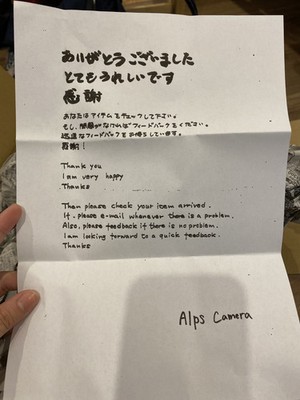 ありがとうございました
とてもうれしいです
感謝
あなたはアイテムをチェックして下さい。
もし、問題がなければフィードバックをください。
迅速なフィードバックをお待ちしています。
感謝！
Thank you
I am very happy
Thanks
Then please check your item arrived.
If. please e-mail whenever there is a problem.
Also, please feedback if there is no problem.
I am looking forward to a quick feedback.
Thanks
Alps Camera